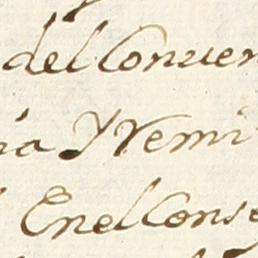 del Conuen
ia Y Remi
En el Conse